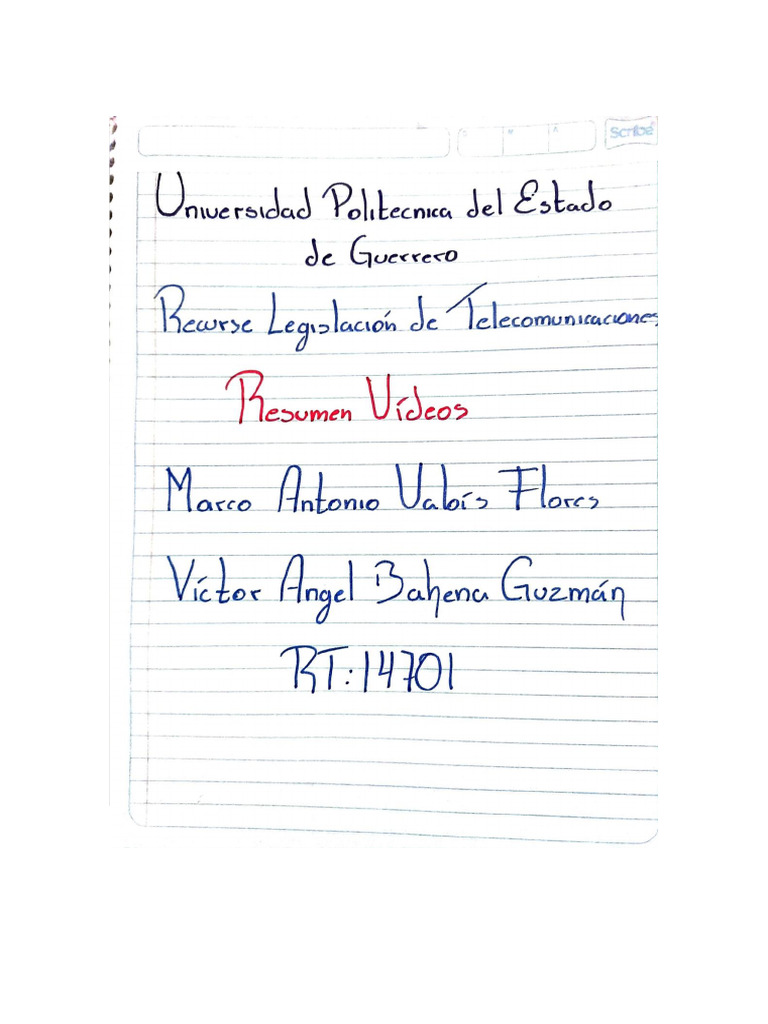 Scribe
Universidad Politecnica del Estado
de Guerrero
Recurse Legislación de Telecomunicaciones
Resumen Vídeos
Marco Antonio Valoís Flores
Víctor Angel Bahena Guzmán
RT:14701